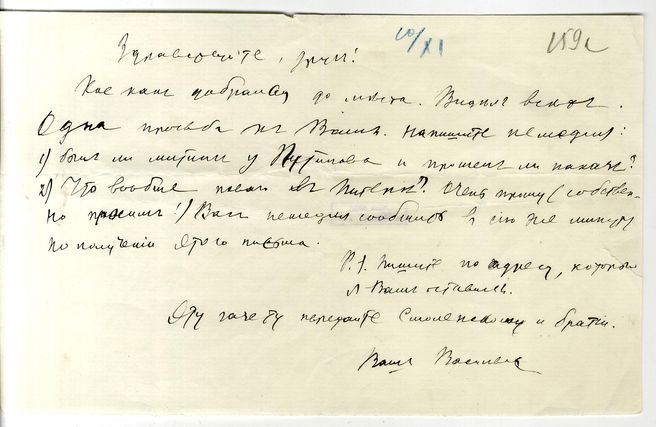 10/XI 159 г
Здравствуйте, друг!
Кое как добрался до места. Видел всех.
Одна просьба къ Вамъ. Напишите немедля:
1) был ли митинг у Путилова и прошел ли накан?
2) Что вообще в Питере? Очень прошу (собствен-
но просим!) Вас немедля сообщить в сію же минуту
по полученіи этого письма.
P.S. Пишите по адресу, который
я Вамъ оставилъ.
Эту газету передайте Смоленскому и братіи.
Ваш Васильев